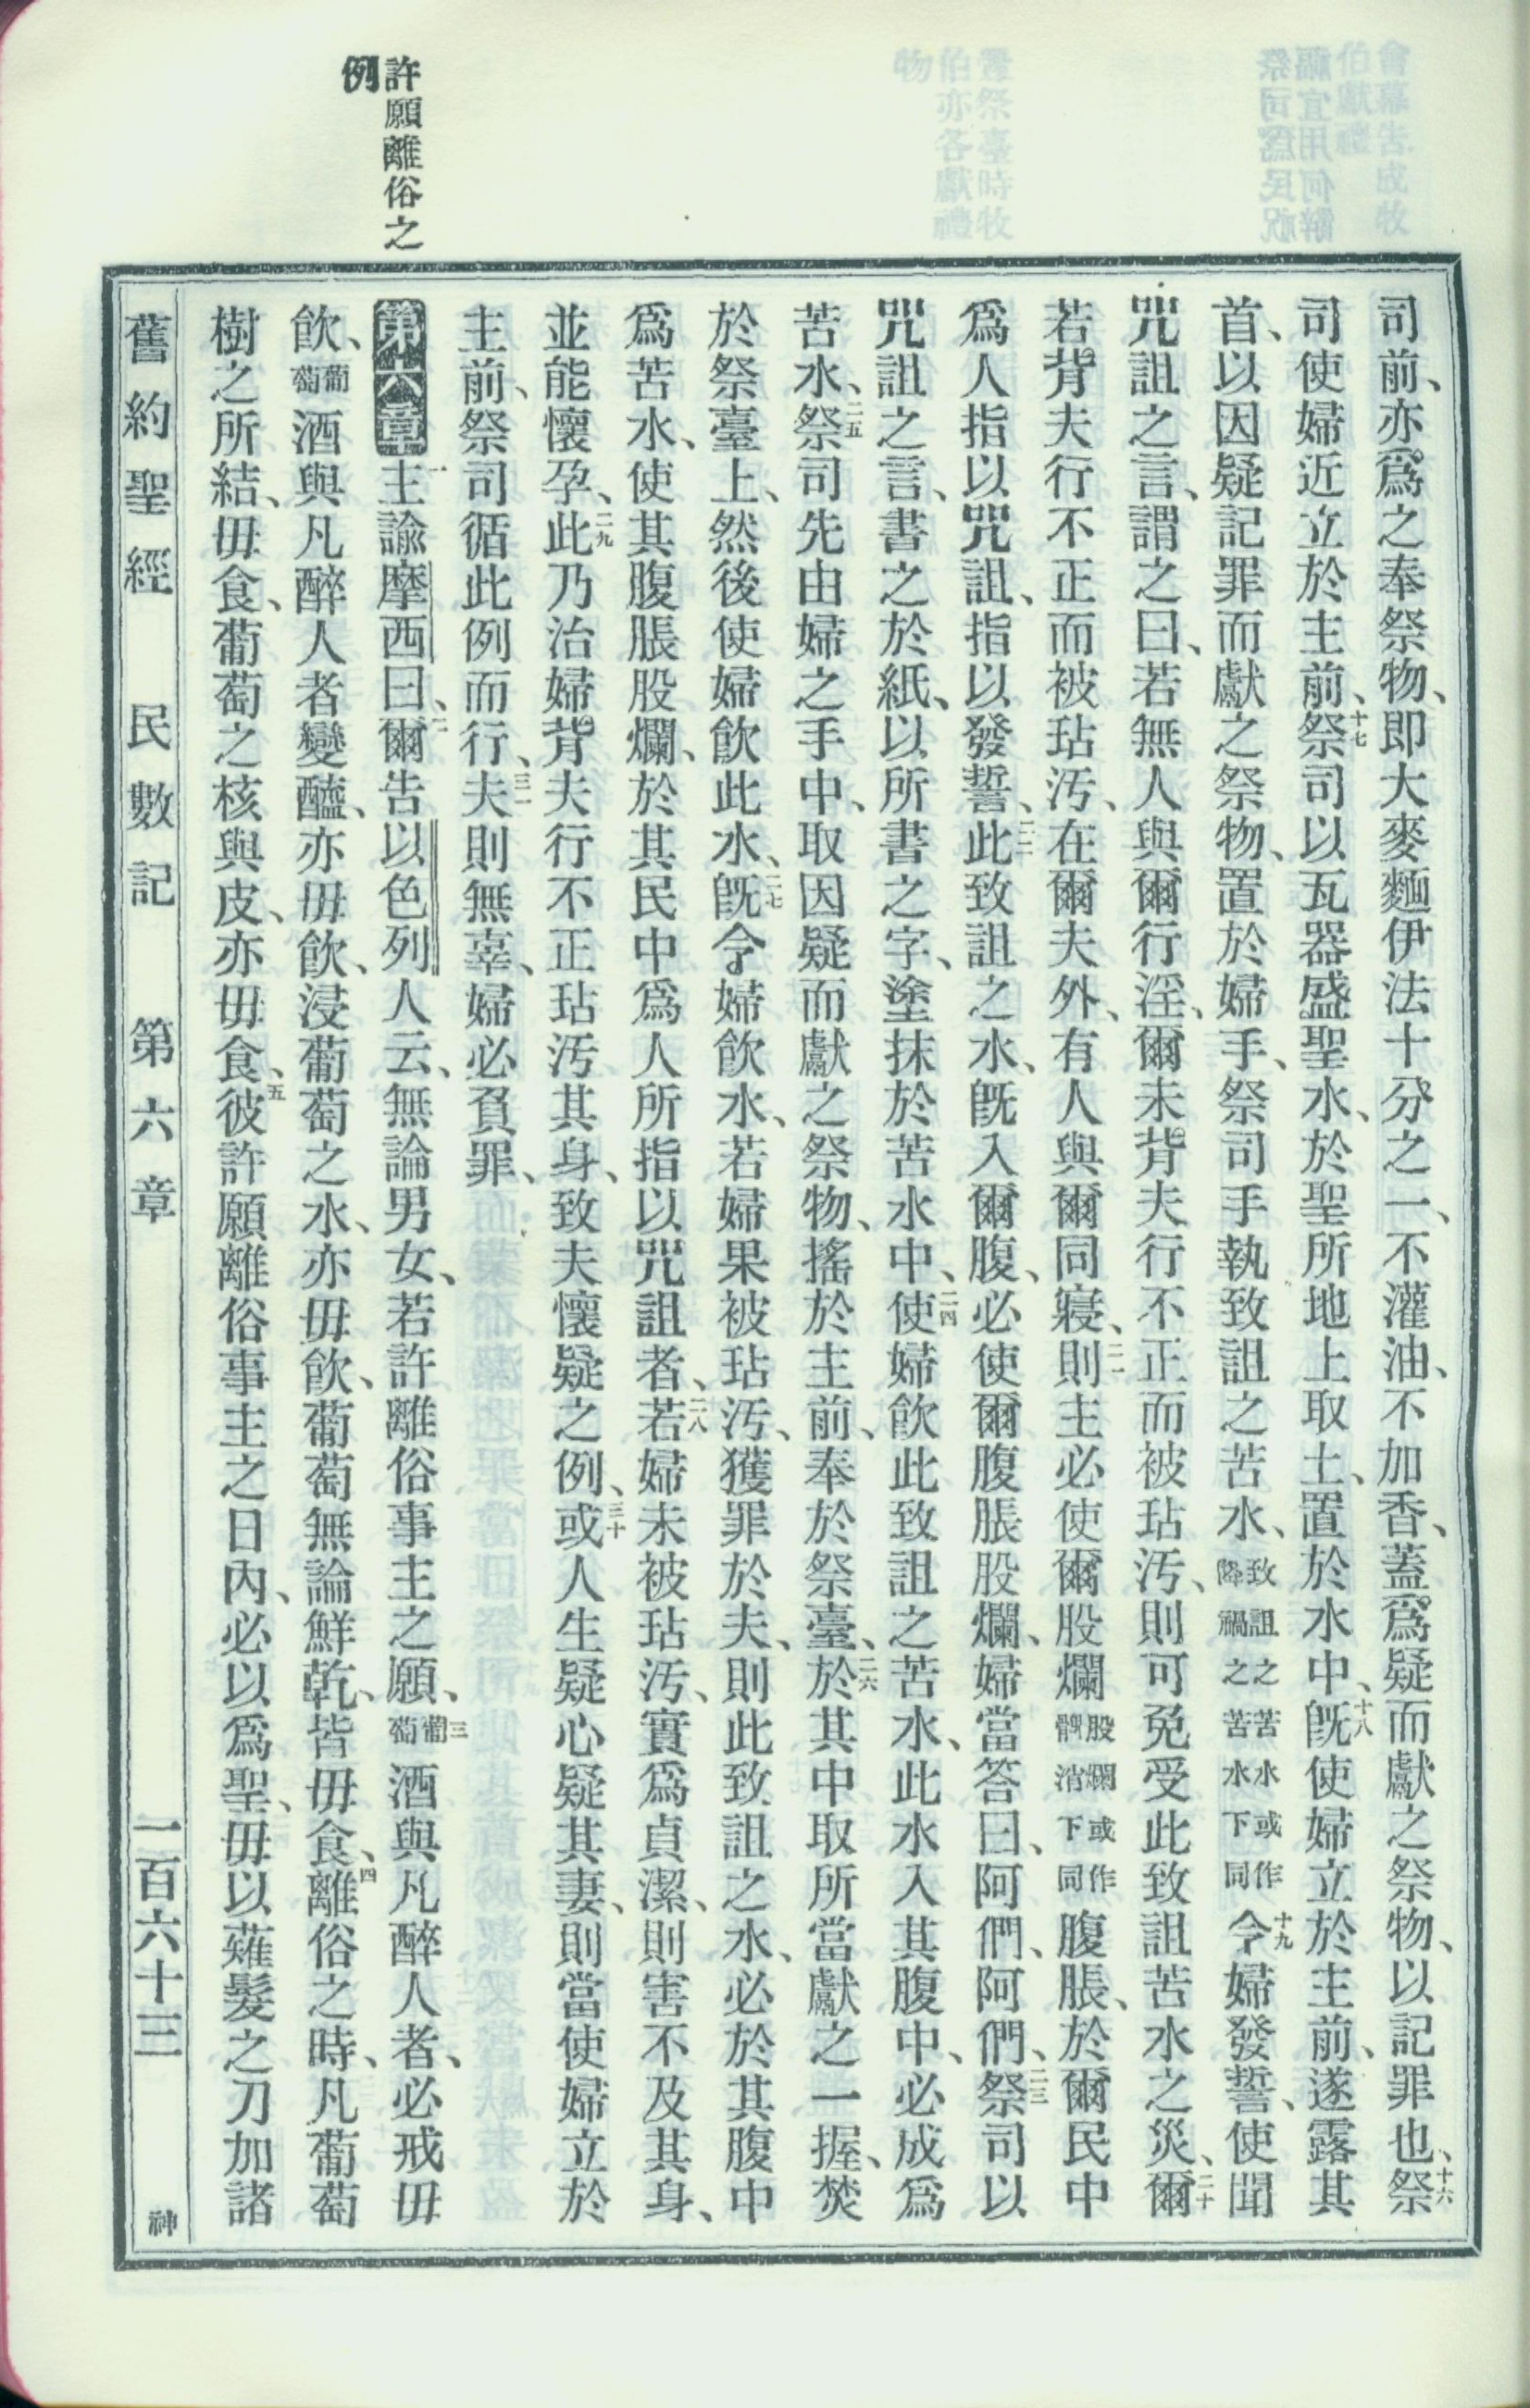 許願離俗之
例
司前、亦爲之奉祭物、即大麥麵伊法十分之一、不灌油、不加香、蓋爲疑而獻之祭物、以記罪也、十六祭
司使婦近立於主前、十七祭司以瓦器盛聖水、於聖所地上取土、置於水中、十八旣使婦立於主前、遂露其
首、以因疑記罪而獻之祭物、置於婦手、祭司手執致詛之苦水、致詛之苦水或作降禍之苦水下同十九令婦發誓、使聞
咒詛之言、謂之曰、若無人與爾行淫、爾未背夫行不正而被玷汚、則可免受此致詛苦水之災、二十爾
若背夫行不正而被玷汚、在爾夫外、有人與爾同寢、二一則主必使爾股爛股爛或作髀消下同腹脹、於爾民中
爲人指以咒詛、指以發誓、二二此致詛之水、旣入爾腹、必使爾腹脹股爛、婦當答曰、阿們、阿們、二三祭司以
咒詛之言、書之於紙、以所書之字、塗抹於苦水中、二四使婦飮此致詛之苦水、此水入其腹中、必成爲
苦水、二五祭司先由婦之手中、取因疑而獻之祭物、搖於主前、奉於祭臺、二六於其中取所當獻之一握、焚
於祭臺上、然後使婦飮此水、二七旣令婦飮水、若婦果被玷汚、獲罪於夫、則此致詛之水、必於其腹中
爲苦水、使其腹脹股爛、於其民中爲人所指以咒詛者、二八若婦未被玷汚、實爲貞潔、則害不及其身、
並能懷孕、二九此乃治婦背夫行不正玷汚其身、致夫懷疑之例、三十或人生疑心疑其妻、則當使婦立於
主前、祭司循此例而行、三一夫則無辜、婦必負罪、
第六章一主諭摩西曰、二爾告以色列人云、無論男女、若許離俗事主之願、三葡萄酒與凡醉人者、必戒毋
飮、葡萄酒與凡醉人者變醯、亦毋飮、浸葡萄之水、亦毋飮、葡萄無論鮮乾、皆毋食、四離俗之時、凡葡萄
樹之所結、毋食、葡萄之核與皮、亦毋食、五彼許願離俗事主之日內、必以爲聖、毋以薙髮之刀加諸
舊約聖經 民數記 第六章 一百六十三 神